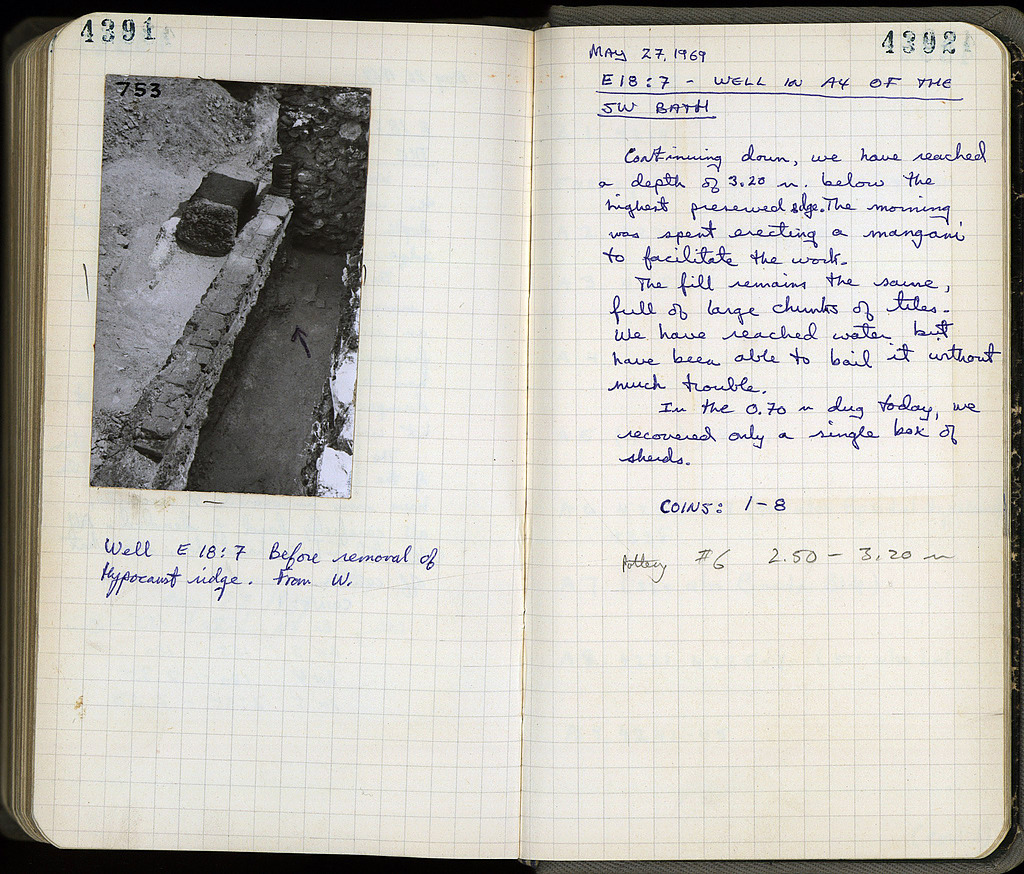 4391
753
Well E 18:7 Before removal of
Hypocaust ridge. From W.
4392
MAY 27, 1969
E 18:7 - WELL IN A4 OF THE
SW BATH
Continuing down, we have reached
a depth of 3.20 m. below the
highest preserved edge. The morning
was spent erecting a mangani
to facilitate the work.
The fill remains the same,
full of large chunks of tiles.
We have reached water but
have been able to bail it without
much trouble.
In the 0.70 m dug today, we
recovered only a single box of
sherds.
COINS: 1-8
Pottery #6 2.50 - 3.20 m